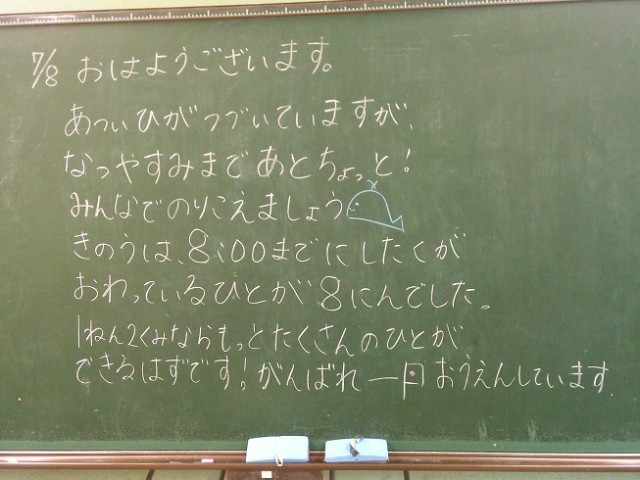 7/8 おはようございます。
あついひがつづいていますが、
なつやすみまであとちょっと!
みんなでのりこえましょう
きのうは、8:00までにしたくが
おわっているひとが8にんでした。
1ねん2くみならもっとたくさんのひとが
できるはずです!がんばれ一円おうえんしています